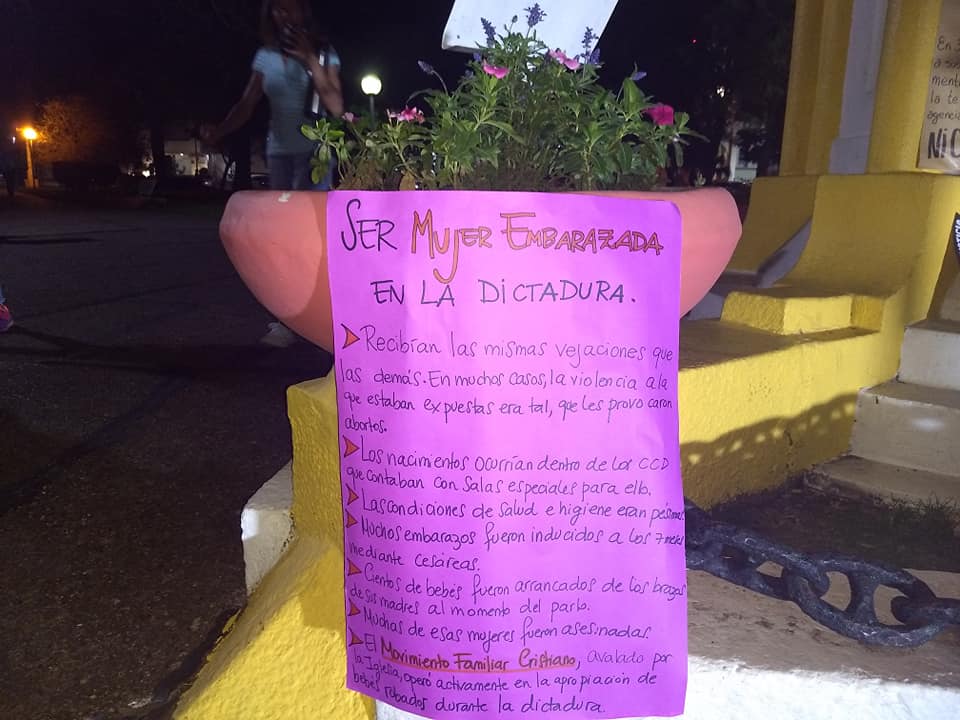 SER MUJER EMBARAZADA
EN LA DICTADURA.
Recibían las mismas vejaciones que
las demás. En muchos casos, la violencia a la
que estaban expuestas era tal, que les provocaron
abortos.
Los nacimientos ocurrían dentro de los CCD
que contaban con salas especiales para ello.
Las condiciones de salud e higiene eran pésimas
Muchos embarazos fueron inducidos a los 7 meses
mediante cesáreas.
Cientos de bebés fueron arrancados de los brazos
de sus madres al momento del parto.
Muchas de esas mujeres fueron asesinadas.
El Movimiento Familiar Cristiano, avalado por
la Iglesia, operó activamente en la apropiación de
bebés robados durante la dictadura.
En
a sus
ment
la te
agencia
NI